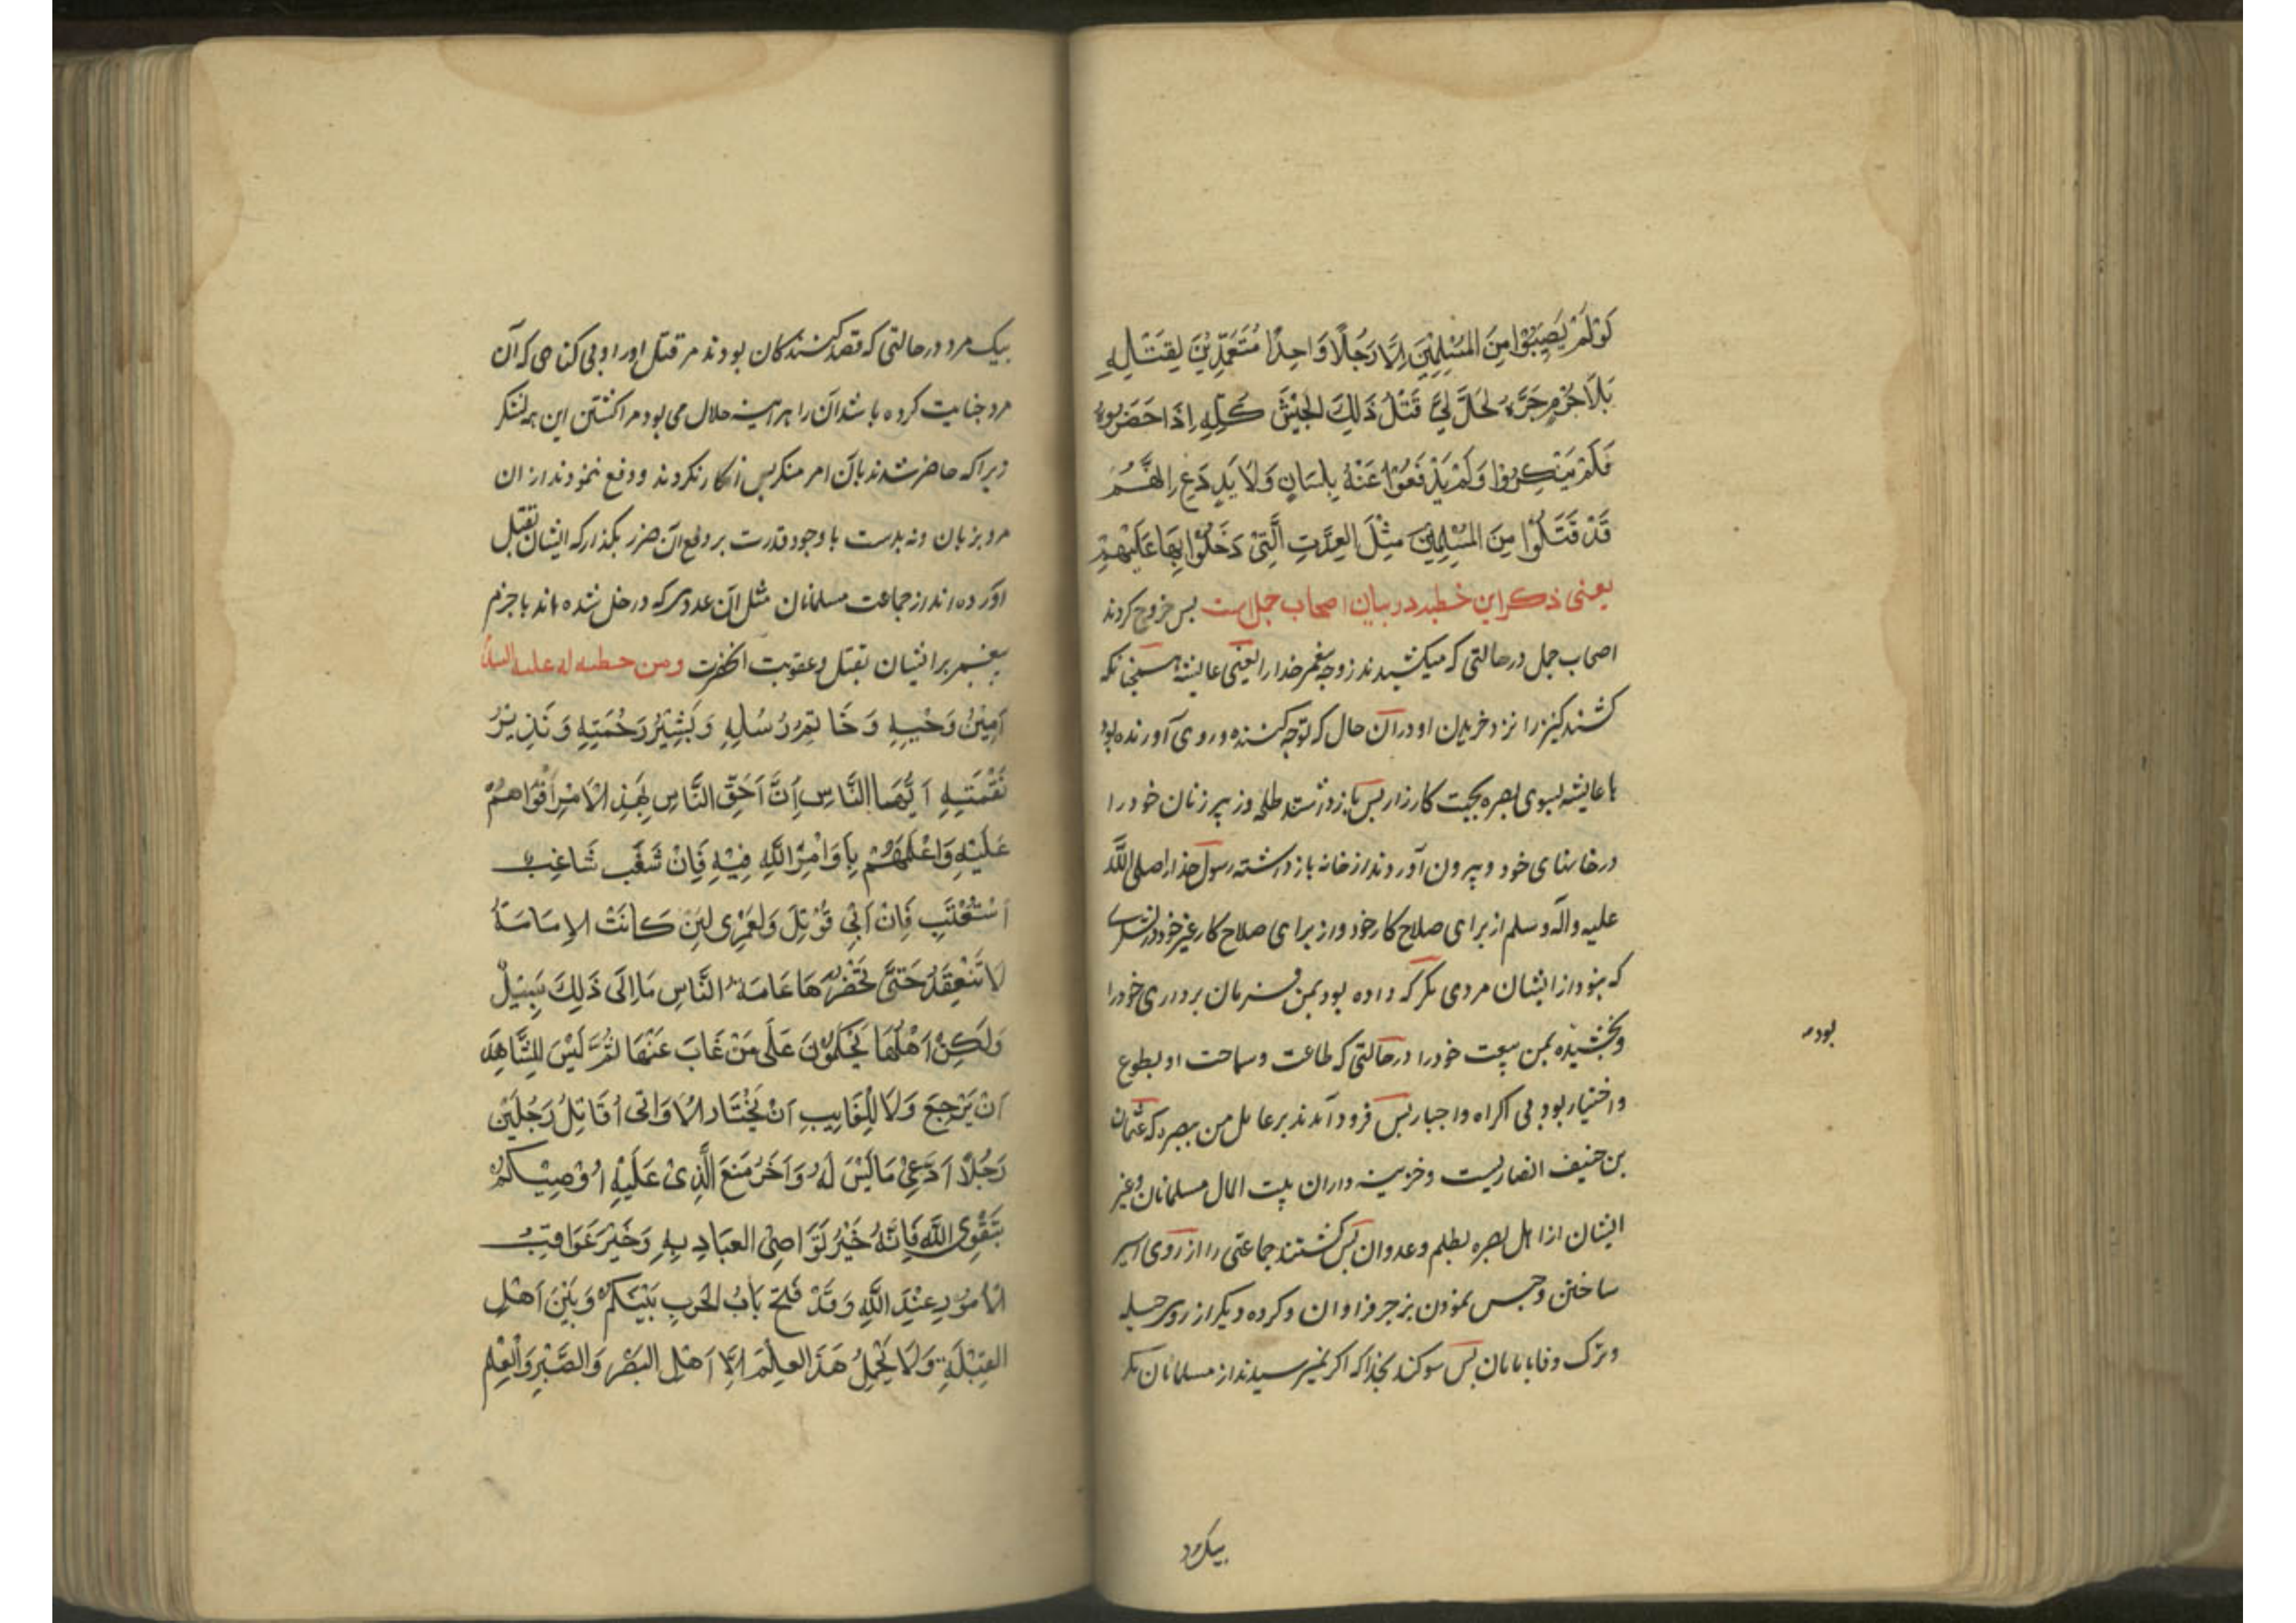 لَوْ لَمْ يُصِيْبُوا مِنَ المُسْلِمِيْنَ اِلَّا رَجُلًا وَاحِدًا مُتَعَمِّدِيْنَ لِقَتْلِهِ
بِلَا جُرْمٍ جَرَّهُ لَحَلَّ لِيَ قَتْلُ ذَلِكَ الجَيْشِ كُلِّهِ اِذَا حَضَرُوهُ
فَلَمْ يُنْكِرُوا وَلَمْ يَدْفَعُوْا عَنْهُ بِلِسَانٍ وَلَا يَدٍ دَعْ اِنَّهُمْ
قَدْ قَتَلُوا مِنَ المُسْلِمِيْنَ مِثْلَ العِدَّتِ الَّتِيْ دَخَلُوا بِهَا عَلَيْهِمْ
يعنى ذكر اين خطبه در بيان اصحاب جمل است پس خروج كردند
اصحاب جمل در حالتى كه ميكشيدند زوجه پيغمبر خدا را يعنى عايشه همچنانكه
كشند كنيز را نزد خريدن او در آن حال كه توجه كننده و روى آورنده بود
با عايشه بسوى بصره بجهت كارزار پس باز داشتند طلحه و زبير زنان خود را
در خانهاى خود و بيرون آوردند از خانه باز داشته رسول خدا را صلى الله
عليه وآله وسلم از براى صلاح كار خود و از براى صلاح كار غير خود در لشكرى
كه نبود از ايشان مردى مكر كه داده بود بمن فرمان بردارى خود را
وبخشيده بمن بيعت خود را در حالتى كه طاعت و سماحت او بطوع
بود
واختيار بود بى اكراه واجبار پس فرود آمدند بر عامل من ببصره كه عثمان
بن حنيف انصاريست وخزينه داران بيت المال مسلمانان وغير
ايشان از اهل بصره بظلم وعدوان پس كشتند جماعتى را از روى اسير
ساختن وحبس نمودن بزجر فراوان وكروه ديكر از روى حيله
وترك وفا بامان پس سوكند بخدا كه اكر نميرسيدند از مسلمانان مكر
بيك مرد
بيك مرد در حالتى كه قصد كنندكان بودند مر قتل او را و بى كناهى كه آن
مرد جنايت كرده باشد آن را هر آينه حلال مى بود مرا كشتن اين همه لشكر
زيرا كه حاضر شدند بآن امر منكر پس انكار نكردند ودفع ننمودند از ان
مرد بزبان ونه بدست با وجود قدرت بر دفع آن ضرر بكذار كه ايشان بقتل
آورده اند از جماعت مسلمانان مثل آن عددى كه داخل شده اند با جزم
پيغمبر بر ايشان بقتل وعقوبت آنحضرت ومن خطبه له عليه السلام
اَمِيْنُ وَحْيِهِ وَخَاتِمُ رُسُلِهِ وَبَشِيْرُ رَحْمَتِهِ وَنَذِيرُ
نَقْمَتِهِ اَيُّهَا النَّاسِ اِنَّ اَحَقَّ النَّاسِ بِهَذِ الْاَمْرِ اَقْوَاهُمْ
عَلَيْهِ وَاعْلَمُهُمْ بِاَوَامِرِ اللَّهِ فِيْهِ فَاِنْ شَغَبَ شَاغِبٌ
اسْتُعْتِبَ فَاِنْ اَبَى قُوْتِلَ وَلَعَمْرِى لَئِنْ كَانَتْ الاِمَامَةُ
لَا تَنْعِقَدُ حَتَّى تَحْضُرَهَا عَامَةُ النَّاسِ مَا اِلَى ذَلِكَ سَبِيْلٌ
وَلَكِنْ اَهْلُهَا يَحْكُمُوْنَ عَلَى مَنْ غَابَ عَنْهَا ثُمَّ لَيْسَ لِلشَّاهِدِ
اَنْ يَرْجِعَ وَلَا لِلْغَايِبِ اَنْ يَخْتَارَ اَلَا وَانى اُقَاتِلُ رَجُلَيْنِ
رَجُلًا ادَّعَى مَا لَيْسَ لَهُ وَاَخَرَ مَنَعَ الَّذِى عَلَيْهِ اُوْصِيْكُمْ
بِتَقْوَى اللَّهِ فَاِنَّهُ خَيْرُ تَوَاصِىْ العِبَادِ بِهِ وَخَيْرُ عَوَاقِبُ
الاُمُوْرِ عِنْدَ اللَّهِ وَقَدْ فُتِحَ بَابُ الْحَرْبِ بَيْنَكُمْ وَبَيْنَ اَهْلِ
القِبْلَةِ وَلَا يَحْمِلُ هَذَ العِلْمَ اِلَّا اَهْلُ البَصَرِ وَالصَّبْرِ وَالْعِلْمِ